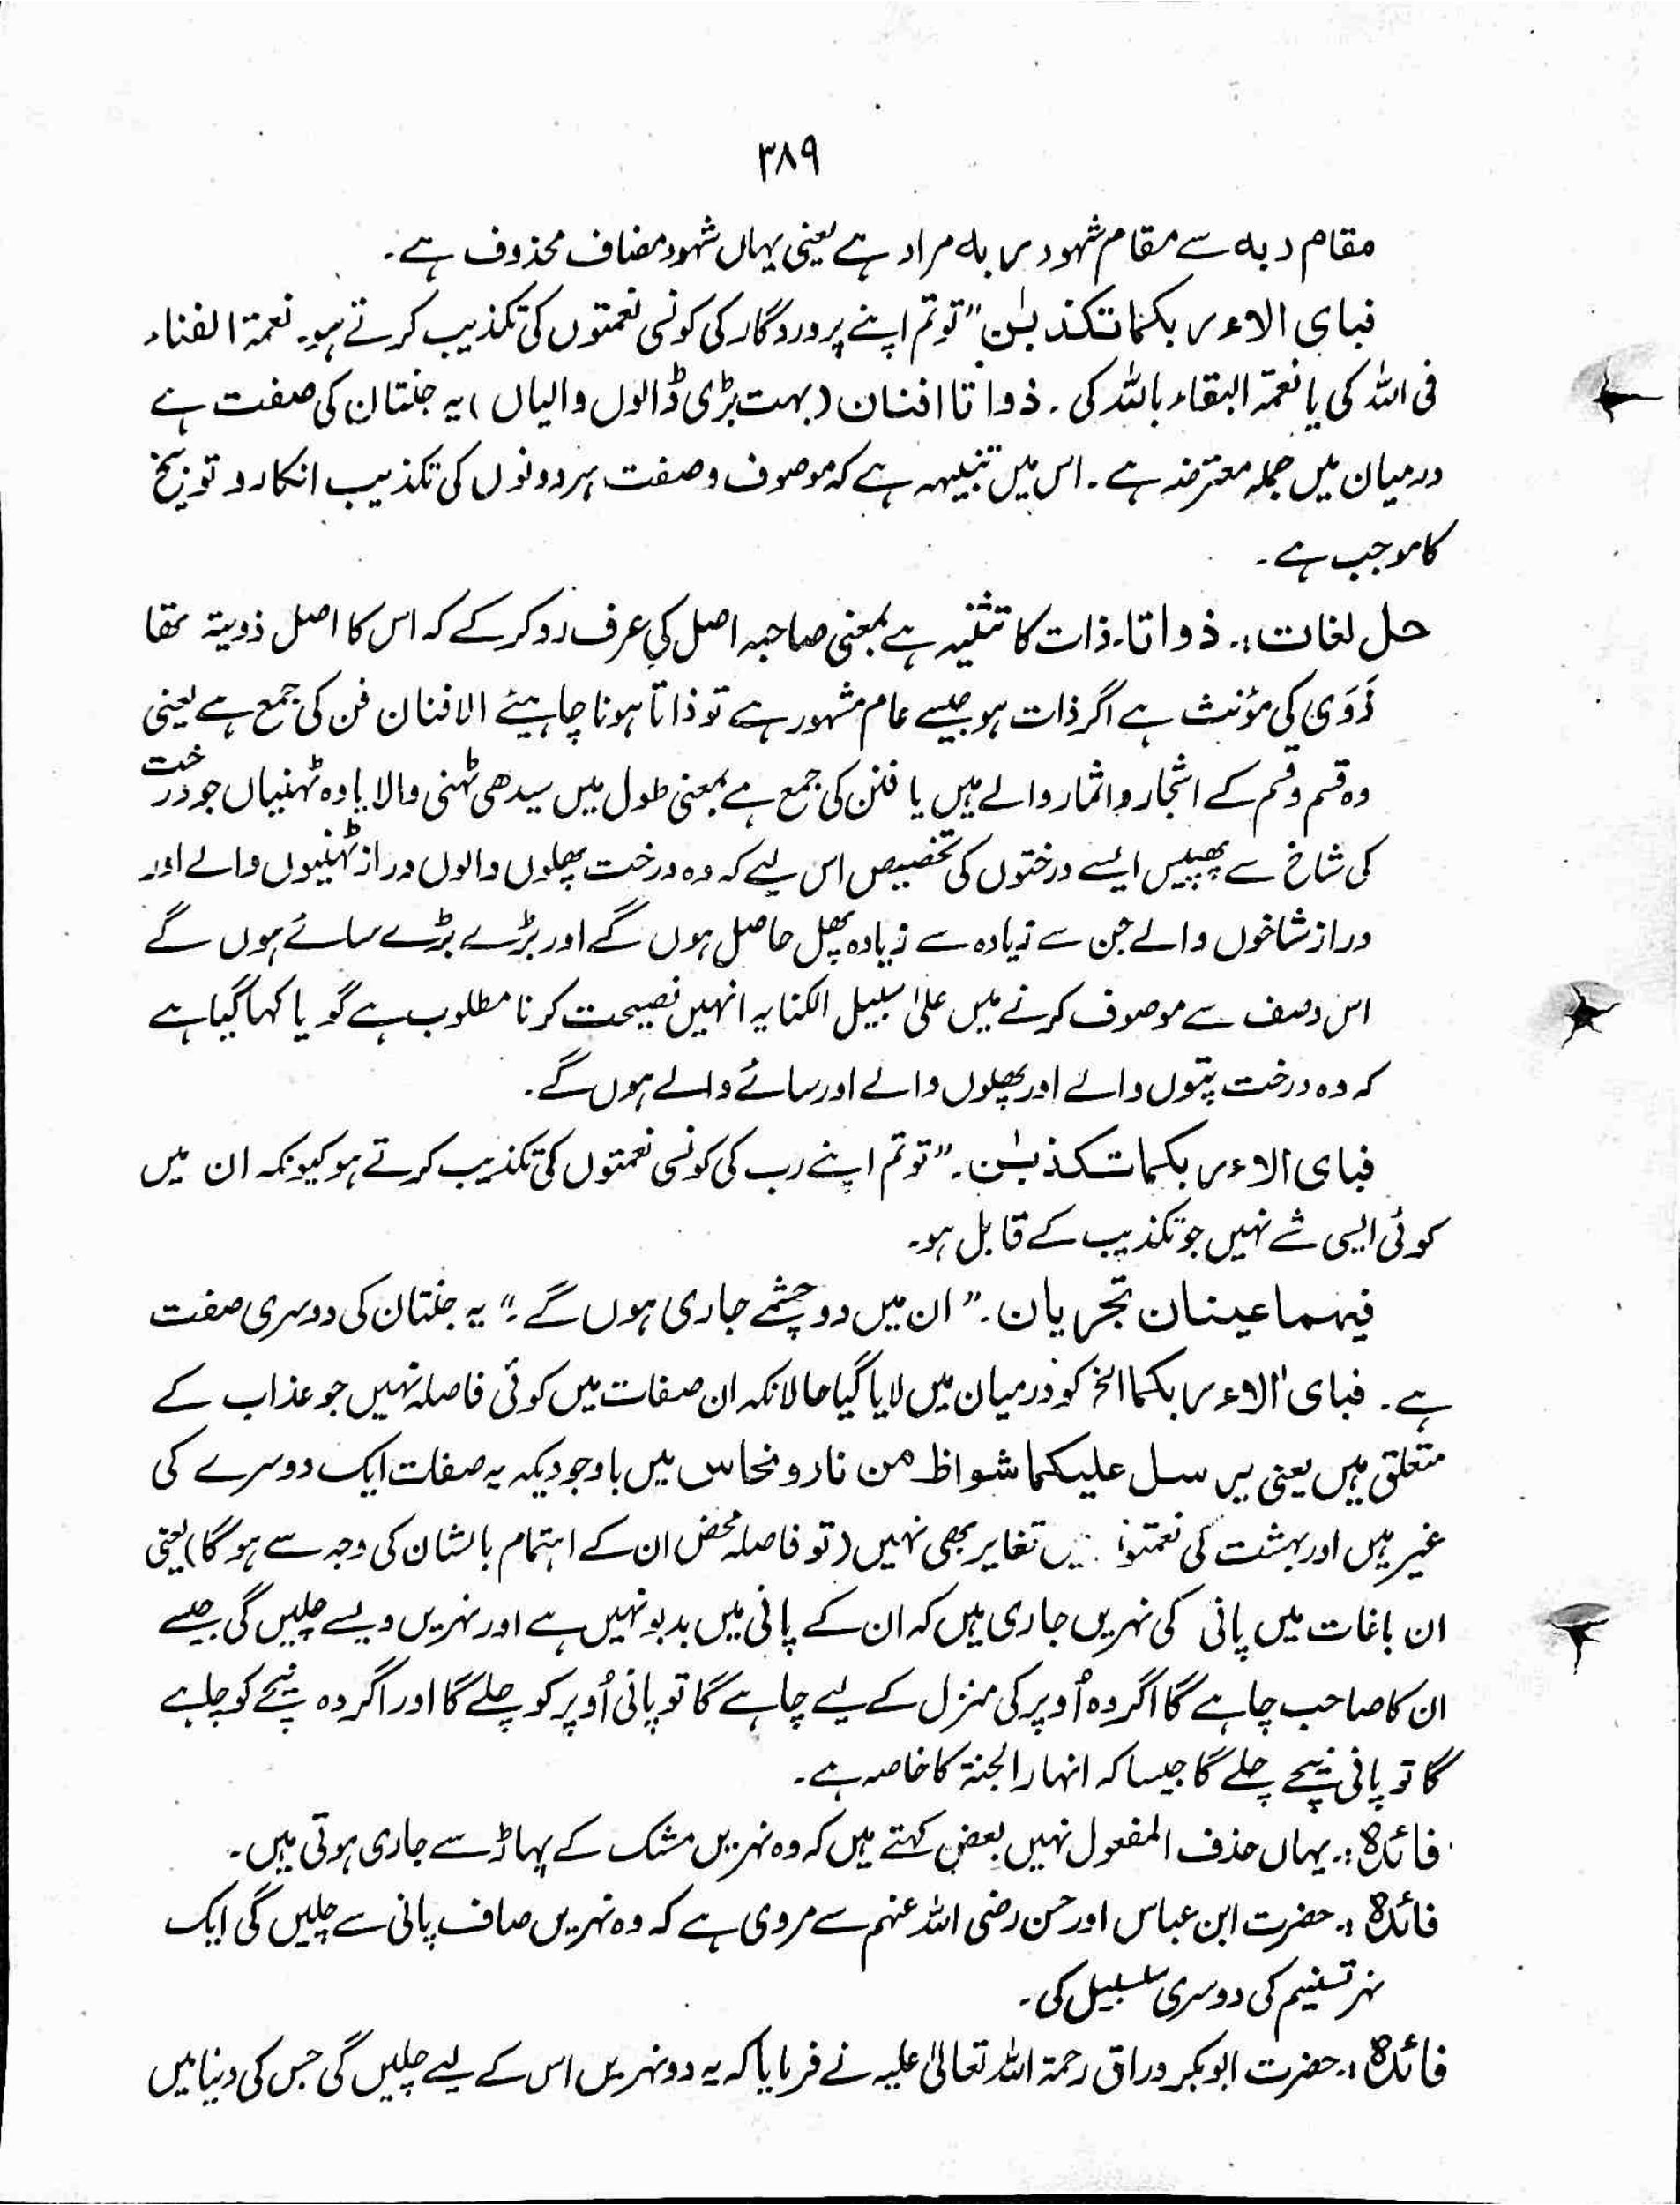 ۳۸۹
مقام ربہ سے مقام شہود ربہ مراد ہے یعنی یہاں شہود مضاف محذوف ہے۔
فبای الاء ربکما تکذبٰن ”تو تم اپنے پروردگار کی کونسی نعمتوں کی تکذیب کرتے ہو۔ نعمۃ الفناء
فی اللہ کی یا نعمۃ البقاء باللہ کی۔ ذواتا افنان (بہت بڑی ڈالوں والیاں) یہ جنتان کی صفت ہے
درمیان میں جملہ معترضہ ہے۔ اس میں تنبیہہ ہے کہ موصوف وصفت ہر دونوں کی تکذیب انکار و توبیخ
کا موجب ہے۔
حل لغات :۔ ذواتا۔ ذات کا تثنیہ ہے بمعنی صاحبہ اصل کی عرف رد کر کے کہ اس کا اصل ذویۃ تھا
ذَوَی کی مؤنث ہے اگر ذات ہو جیسے عام مشہور ہے تو ذاتا ہونا چاہیئے الافنان فن کی جمع ہے یعنی
وہ قسم و قسم کے اشجار و اثمار والے ہیں یا فنن کی جمع ہے بمعنی طول میں سیدھی ٹہنی والا یا وہ ٹہنیاں جو درخت
کی شاخ سے پھیلیں ایسے درختوں کی تخصیص اس لیے کہ وہ درخت پھلوں والوں دراز ٹہنیوں والے اور
دراز شاخوں والے جن سے زیادہ سے زیادہ پھل حاصل ہوں گے اور بڑے بڑے سائے ہوں گے
اس وصف سے موصوف کرنے میں علیٰ سبیل الکنایہ انہیں نصیحت کرنا مطلوب ہے گویا کہا گیا ہے
کہ وہ درخت پتوں والے اور پھلوں والے اور سائے والے ہوں گے۔
فبای الاء ربکما تکذبٰن۔ ”تو تم اپنے رب کی کونسی نعمتوں کی تکذیب کرتے ہو کیونکہ ان میں
کوئی ایسی شے نہیں جو تکذیب کے قابل ہو۔
فیہما عینان تجریان۔ ”ان میں دو چشمے جاری ہوں گے۔“ یہ جنتان کی دوسری صفت
ہے۔ فبای الاء ربکما الخ کو درمیان میں لایا گیا حالانکہ ان صفات میں کوئی فاصلہ نہیں جو عذاب کے
متعلق ہیں یعنی یرسل علیکما شواظ من نار ونحاس میں باوجودیکہ یہ صفات ایک دوسرے کی
غیر ہیں اور بہشت کی نعمتوں میں تغایر بھی نہیں (تو فاصلہ محض ان کے اہتمام بالشان کی وجہ سے ہوگا) یعنی
ان باغات میں پانی کی نہریں جاری ہیں کہ ان کے پانی میں بدبو نہیں ہے اور نہریں ویسے چلیں گی جیسے
ان کا صاحب چاہے گا اگر وہ اُوپر کی منزل کے لیے چاہے گا تو پانی اُوپر کو چلے گا اور اگر وہ نیچے کو چاہے
گا تو پانی نیچے چلے گا جیسا کہ انہار الجنۃ کا خاصہ ہے۔
فائدہ :۔ یہاں حذف المفعول نہیں بعض کہتے ہیں کہ وہ نہریں مشک کے پہاڑ سے جاری ہوتی ہیں۔
فائدہ :۔ حضرت ابن عباس اور حسن رضی اللہ عنہم سے مروی ہے کہ وہ نہریں صاف پانی سے چلیں گی ایک
نہر تسنیم کی دوسری سلسبیل کی۔
فائدہ :۔ حضرت ابوبکر وراق رحمۃ اللہ تعالیٰ علیہ نے فرمایا کہ یہ دو نہریں اس کے لیے چلیں گی جس کی دنیا میں